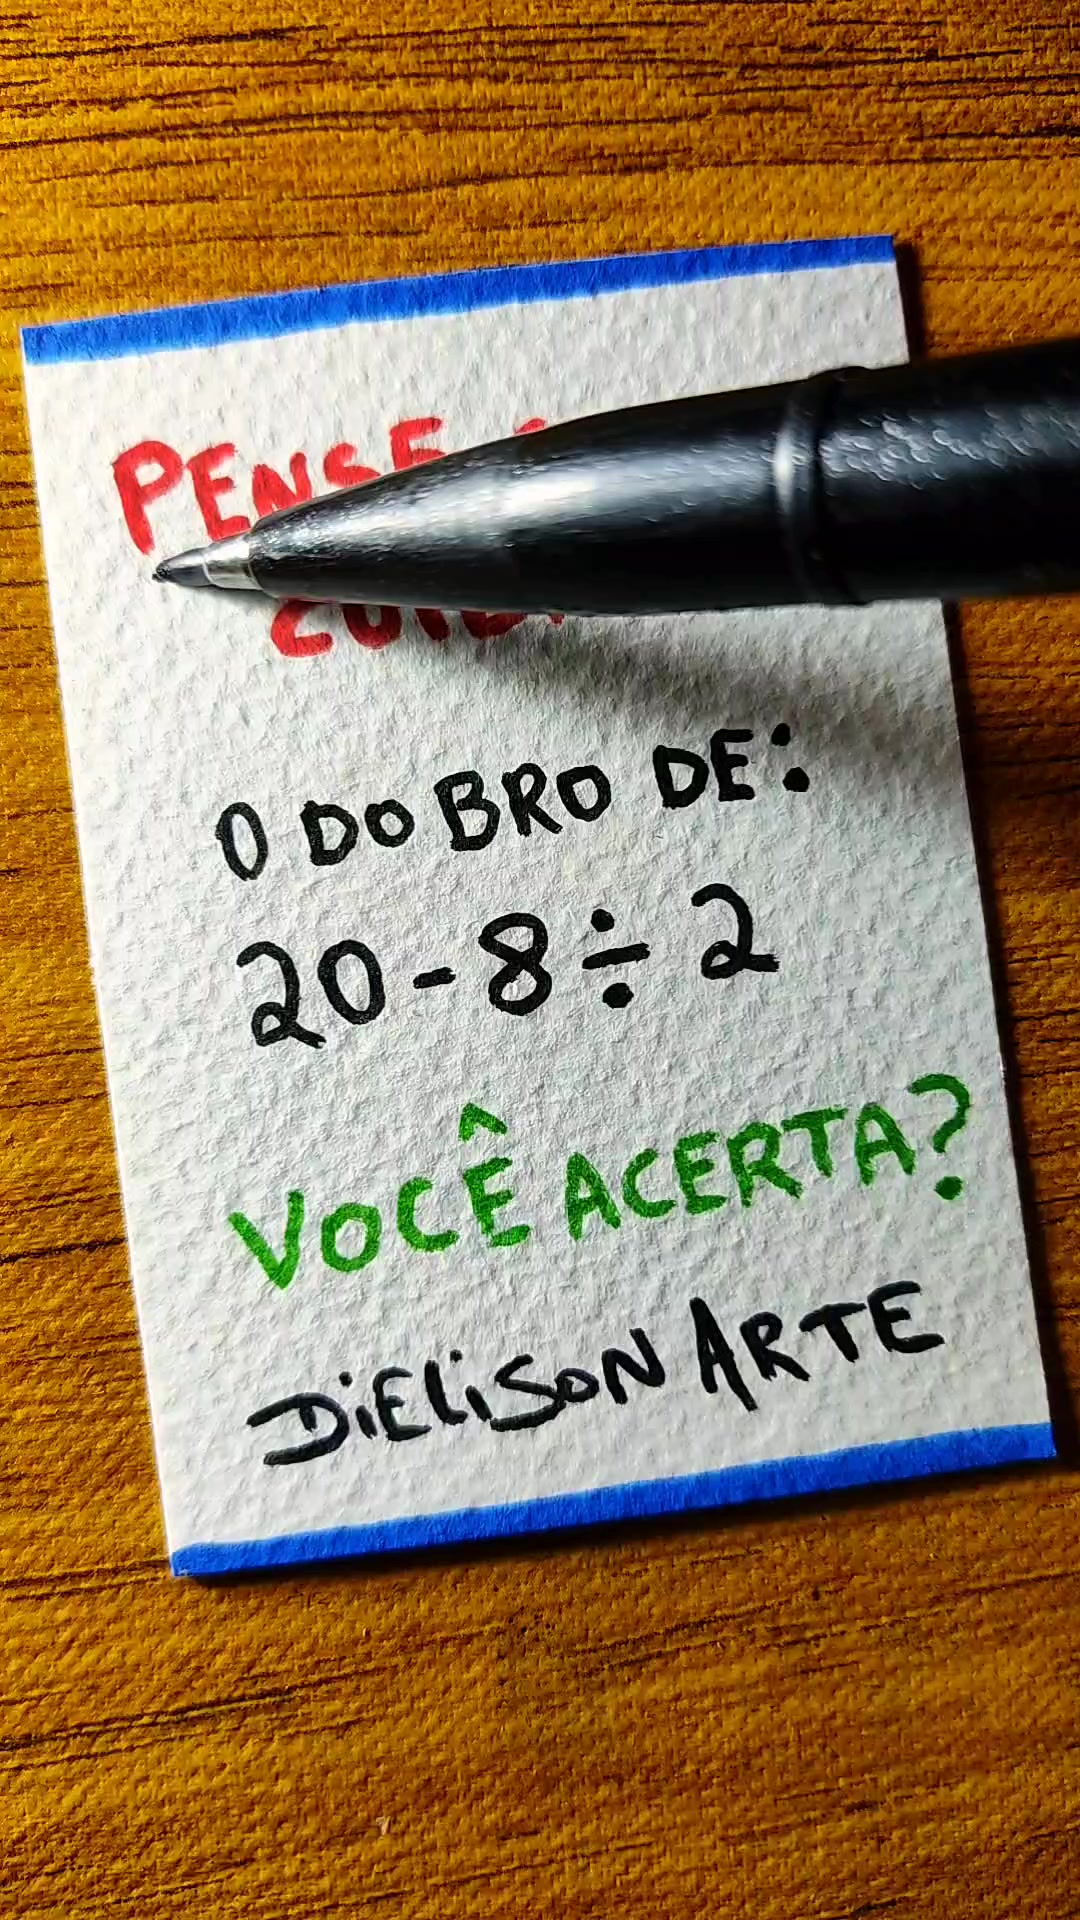 O DOBRO DE:
20-8÷2
VOCÊ ACERTA?
DIELISON ARTE